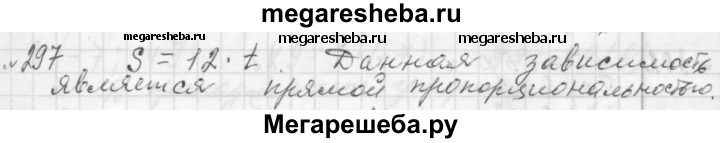 megaresheba.ru
№297 S = 12 · t. Данная зависимость
megaresheba.ru megaresheba.ru
является прямой пропорциональностью.
Мегарешеба.ру